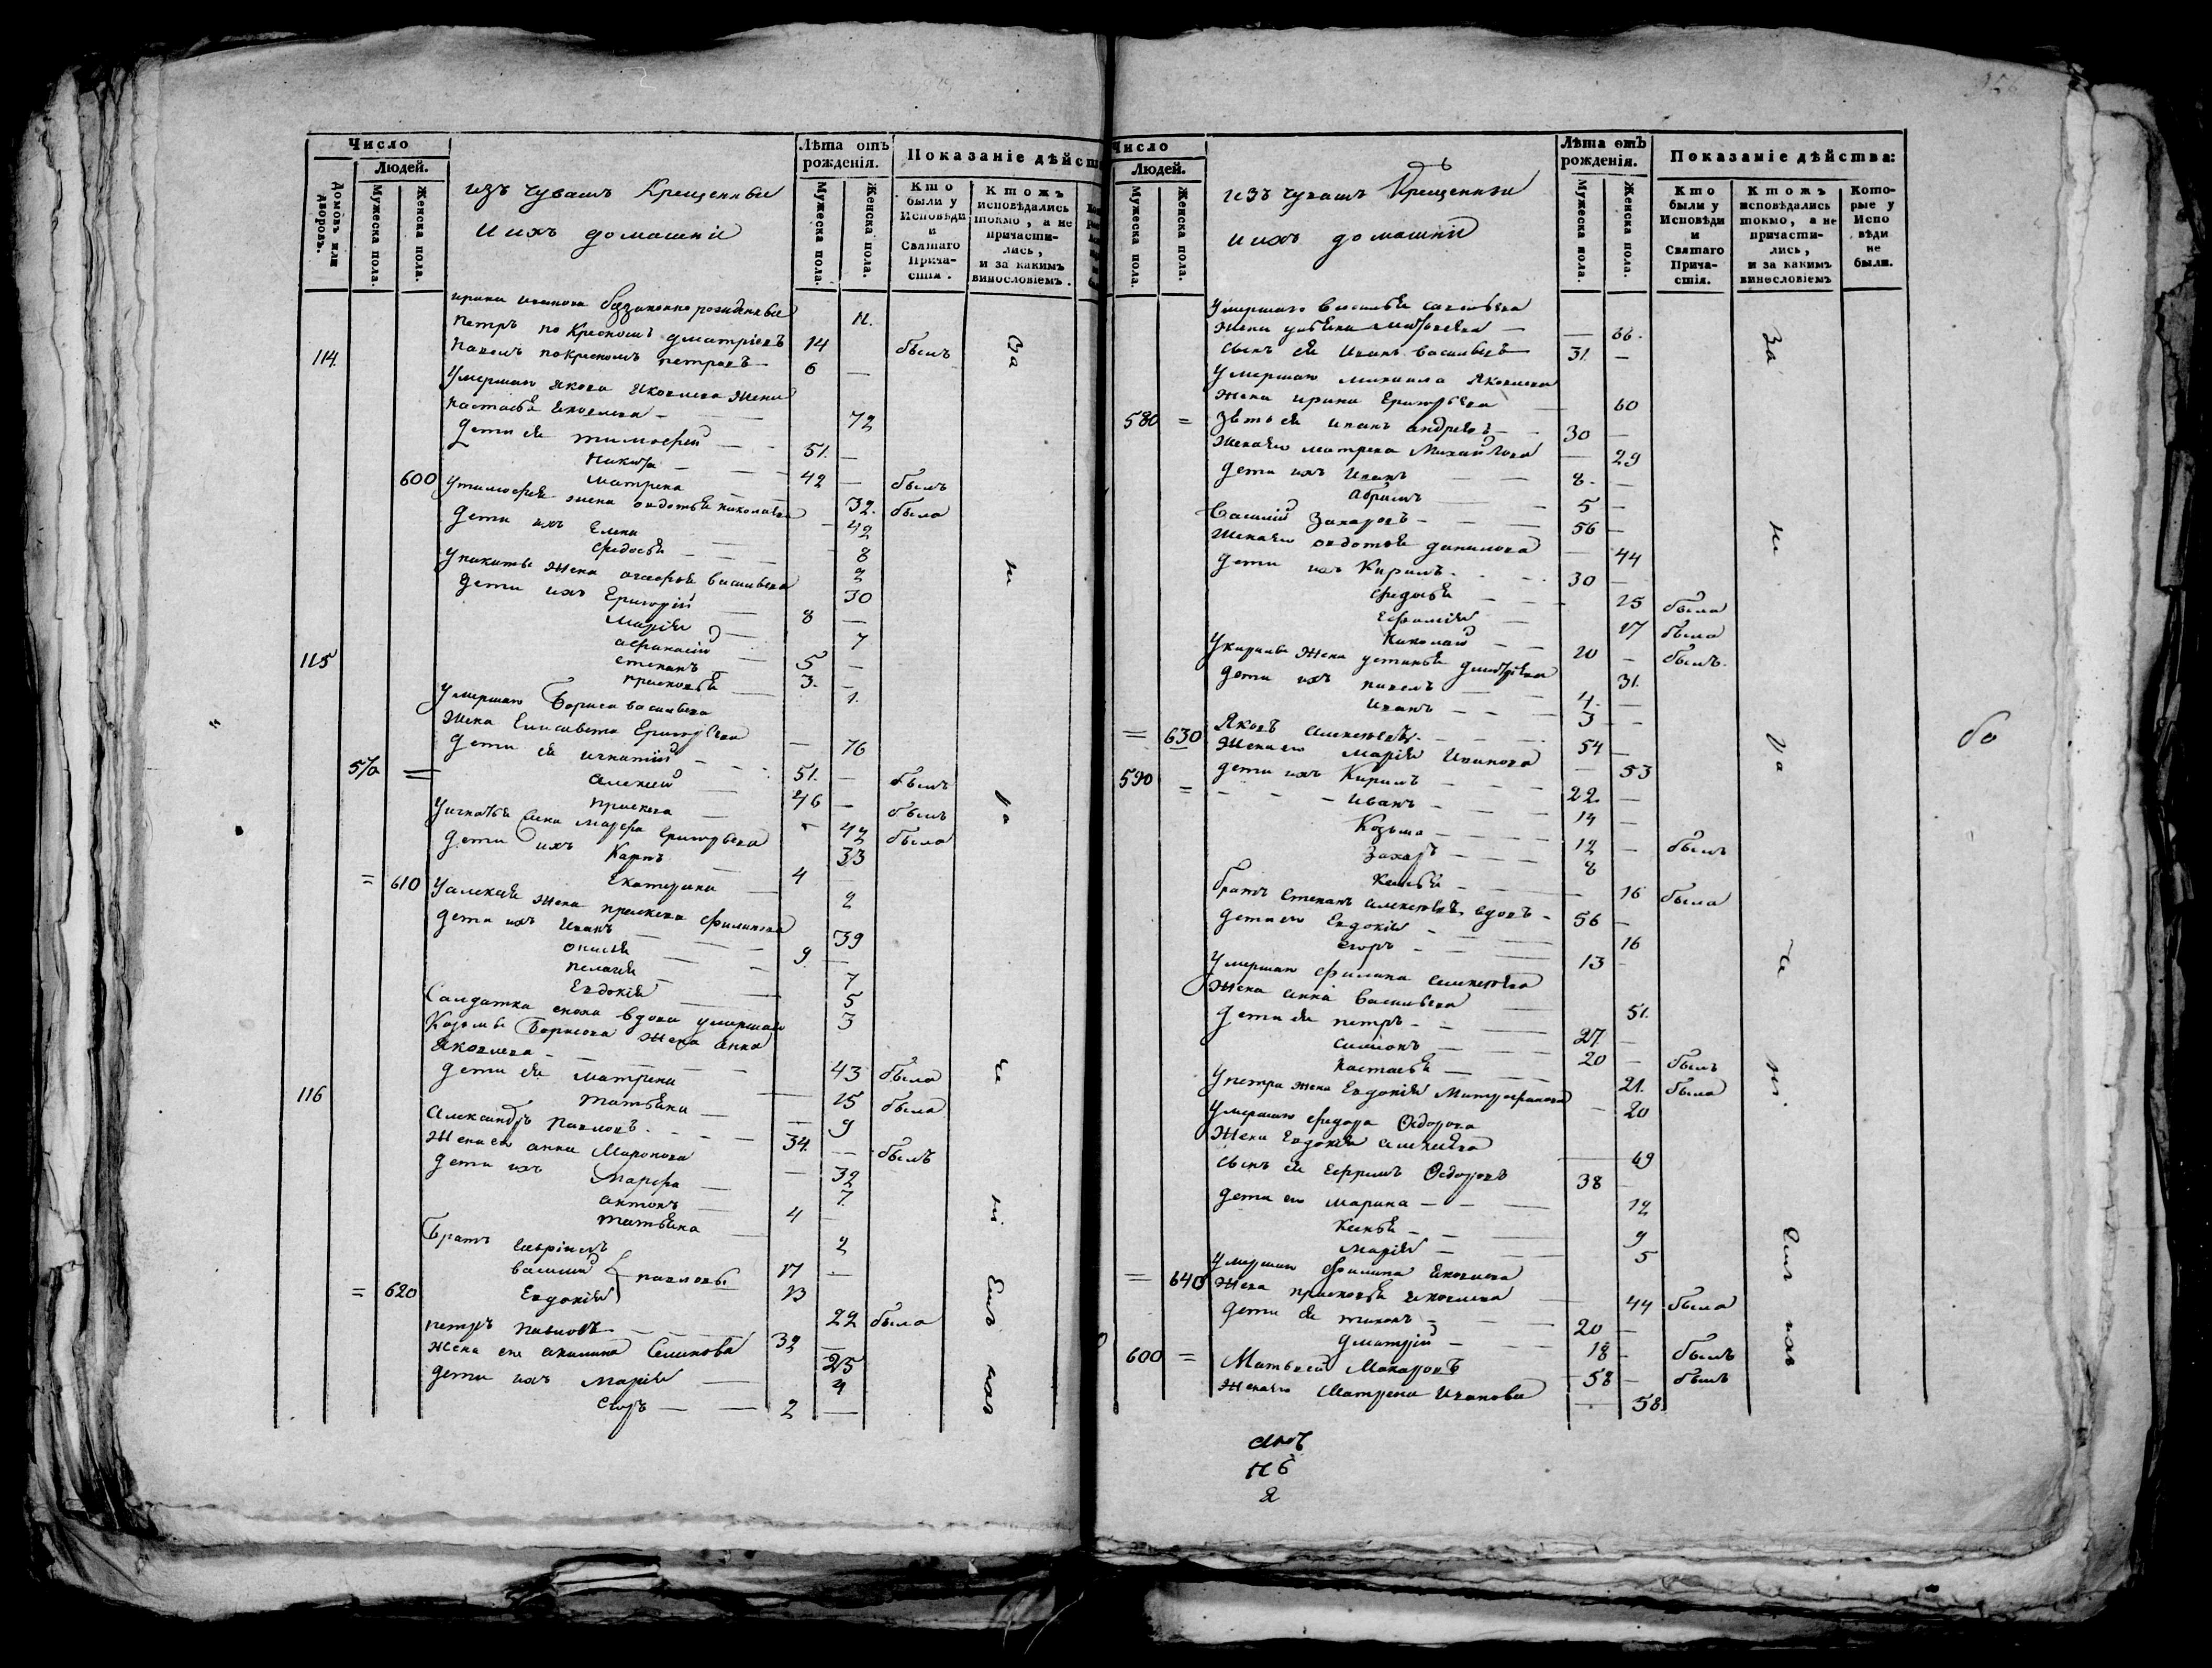 Число
Людей.
Домовъ или дворовъ.
Мужеска пола.
Женска пола.
изъ Чувашъ Крещенныя
и ихъ домашнія
Лѣта отъ рожденія.
Мужеска пола.
Женска пола.
Показаніе дѣйст
Кто были у Исповѣди и Святаго Причастія.
Ктожъ исповѣдались токмо, а не причастились, и за какимъ винословіемъ.
ирина иванова беззаконно рожденная 11.
Петръ по Крестномъ дматріевъ 14 былъ
114. Павелъ по Крестномъ петровъ — 6 —
Умершаго якова Яковлева жена
настасья Яковлева — 72
дети ея тимофей — — 51. —
Никита — — 42 — былъ
600 матрена — — 32. была
Утимофея жена овдотья николаева — 42
дети ихъ Елена — 8
федосья — — 2
Уникиты жена агафья васильева 30
дети ихъ Григорій — 8 —
Марія — 7
афанасій — 5 —
115 степанъ — 3. —
прасковья — 1.
Умершаго Бориса васильева
жена Елисавета Григорьева — 76
дети ея игнатій — — 51. — былъ
570 = алексей — 46 — былъ
праскева — — 42 была
Уигнатья жена марфа Григорьева 33
дети ихъ Карпъ — 4
= 610 Екатерина — 2
Уалексея жена праскева филипова 39
дети ихъ Иванъ — — 9 —
онисья — — 7
пелагея — — 5
Евдокія — — 3
Салдатка снова вдова умершаго
Козьмы Борисова жена анна
Яковлева — — — 43 была
дети ея матрена — 15 была
116 татьяна — — 9
Александръ Павловъ — — 34. — былъ
жена его анна Миронова — 32
дети ихъ Марфа — 7.
антонъ — 4 —
татьяна — 2
Братъ гавріилъ 17 —
василій павловы 13
= 620 Евдокія 22 была
петръ Павловъ — — 32 —
жена его акилина Семинова 25
дети ихъ марія — 4
Егоръ — — 2 —
За
не
ра
че
ні
емъ
ихъ
Число
Людей.
Мужеска пола.
Женска пола.
изъ Чувашъ Крещенныя
и ихъ домашнія
Лѣта отъ рожденія.
Мужеска пола.
Женска пола.
Показаніе дѣйства:
Кто были у Исповѣди и Святаго Причастія.
Ктожъ исповѣдались токмо, а не причастились, и за какимъ винословіемъ
Которые у Исповѣди не были.
Умершаго Василья
жена — — 66.
сынъ ея Иванъ васильевъ — 31. —
Умершаго михаила Яковлева
жена ирина Григорьева — 60
580 = Зять ея иванъ андреевъ — 30 —
жена его матрена Михайлова — 29
дети ихъ Иванъ — — 8. —
абрамъ — — 5 —
Василий Захаровъ — — 56 —
жена его овдотья данилова — 44
дети ихъ Кирилъ — 30 —
федосья — — 25 была
Ефимія — 17 была
Николай — 20 — былъ.
Укирилы жена устинья дмитріева 31.
дети ихъ павелъ — — 4. —
Иванъ — — 3 —
= 630 Яковъ алексеевъ — — 54 —
жена его марія Иванова — 53
590 = дети ихъ Кирилъ — — 22. —
— — Иванъ — — 14 —
Козьма — — 12 — былъ
Захаръ — — 8
Ксенья — — 16 была
братъ степанъ алексеевъ, вдовъ — 56 —
дети его Евдокія — — 16
Егоръ — — 13 —
Умершаго филипа алексеева
жена анна васильева — 51.
дети ея петръ — — 27. —
симіонъ — — 20 — былъ
Настасья — — 21. была
Упетра жена Евдокія Митрофанова — 20
Умершаго федора Ѳедорова
жена Евдокія алексеева — 49
сынъ ея Ефремъ Ѳедоровъ 38 —
дети его марина — — 12
Ксенья — — 9
марія — — 5
Умершаго филипа Яковлева
= 640 жена прасковья яковлева — 44 была
дети ея тихонъ — — 20 —
дматрій — — 18 — былъ
600 = Матвей Макаровъ — 58 — былъ
жена его Матрена Иванова — 58.
За
не
ра
че
ні
емъ
ихъ